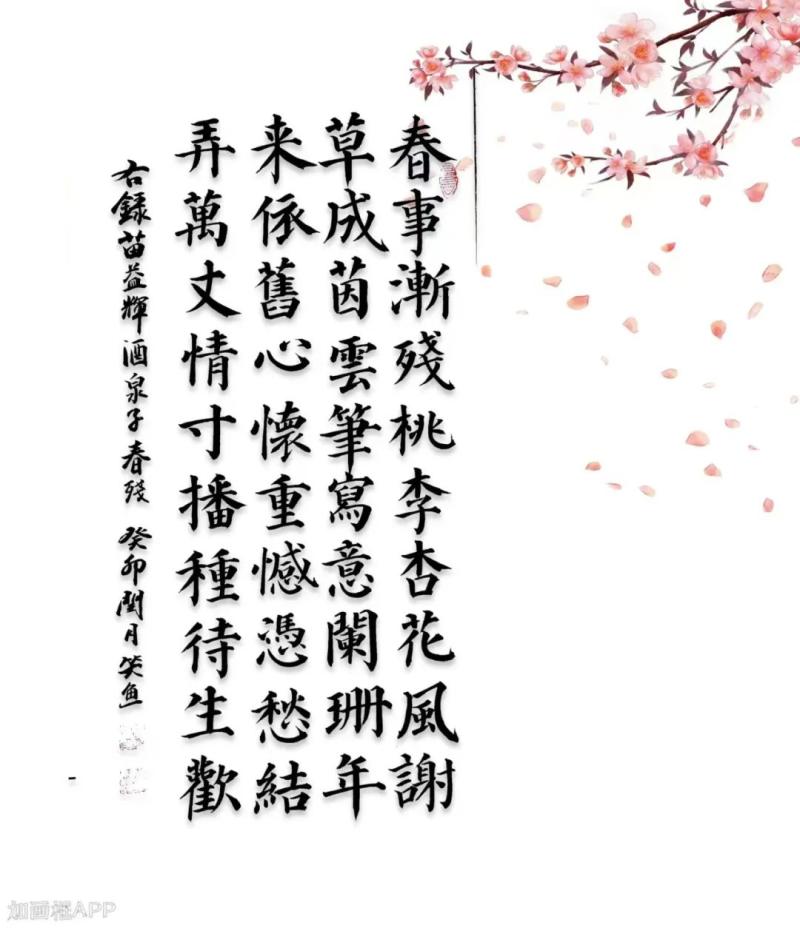 春事漸殘桃李杏花風謝
草成茵雲筆寫意闌珊年
来依舊心懷重憾憑愁結
弄萬丈情寸播種待生歡
右録苗益輝酒泉子春殘 癸卯閏月笑魚
如画框APP